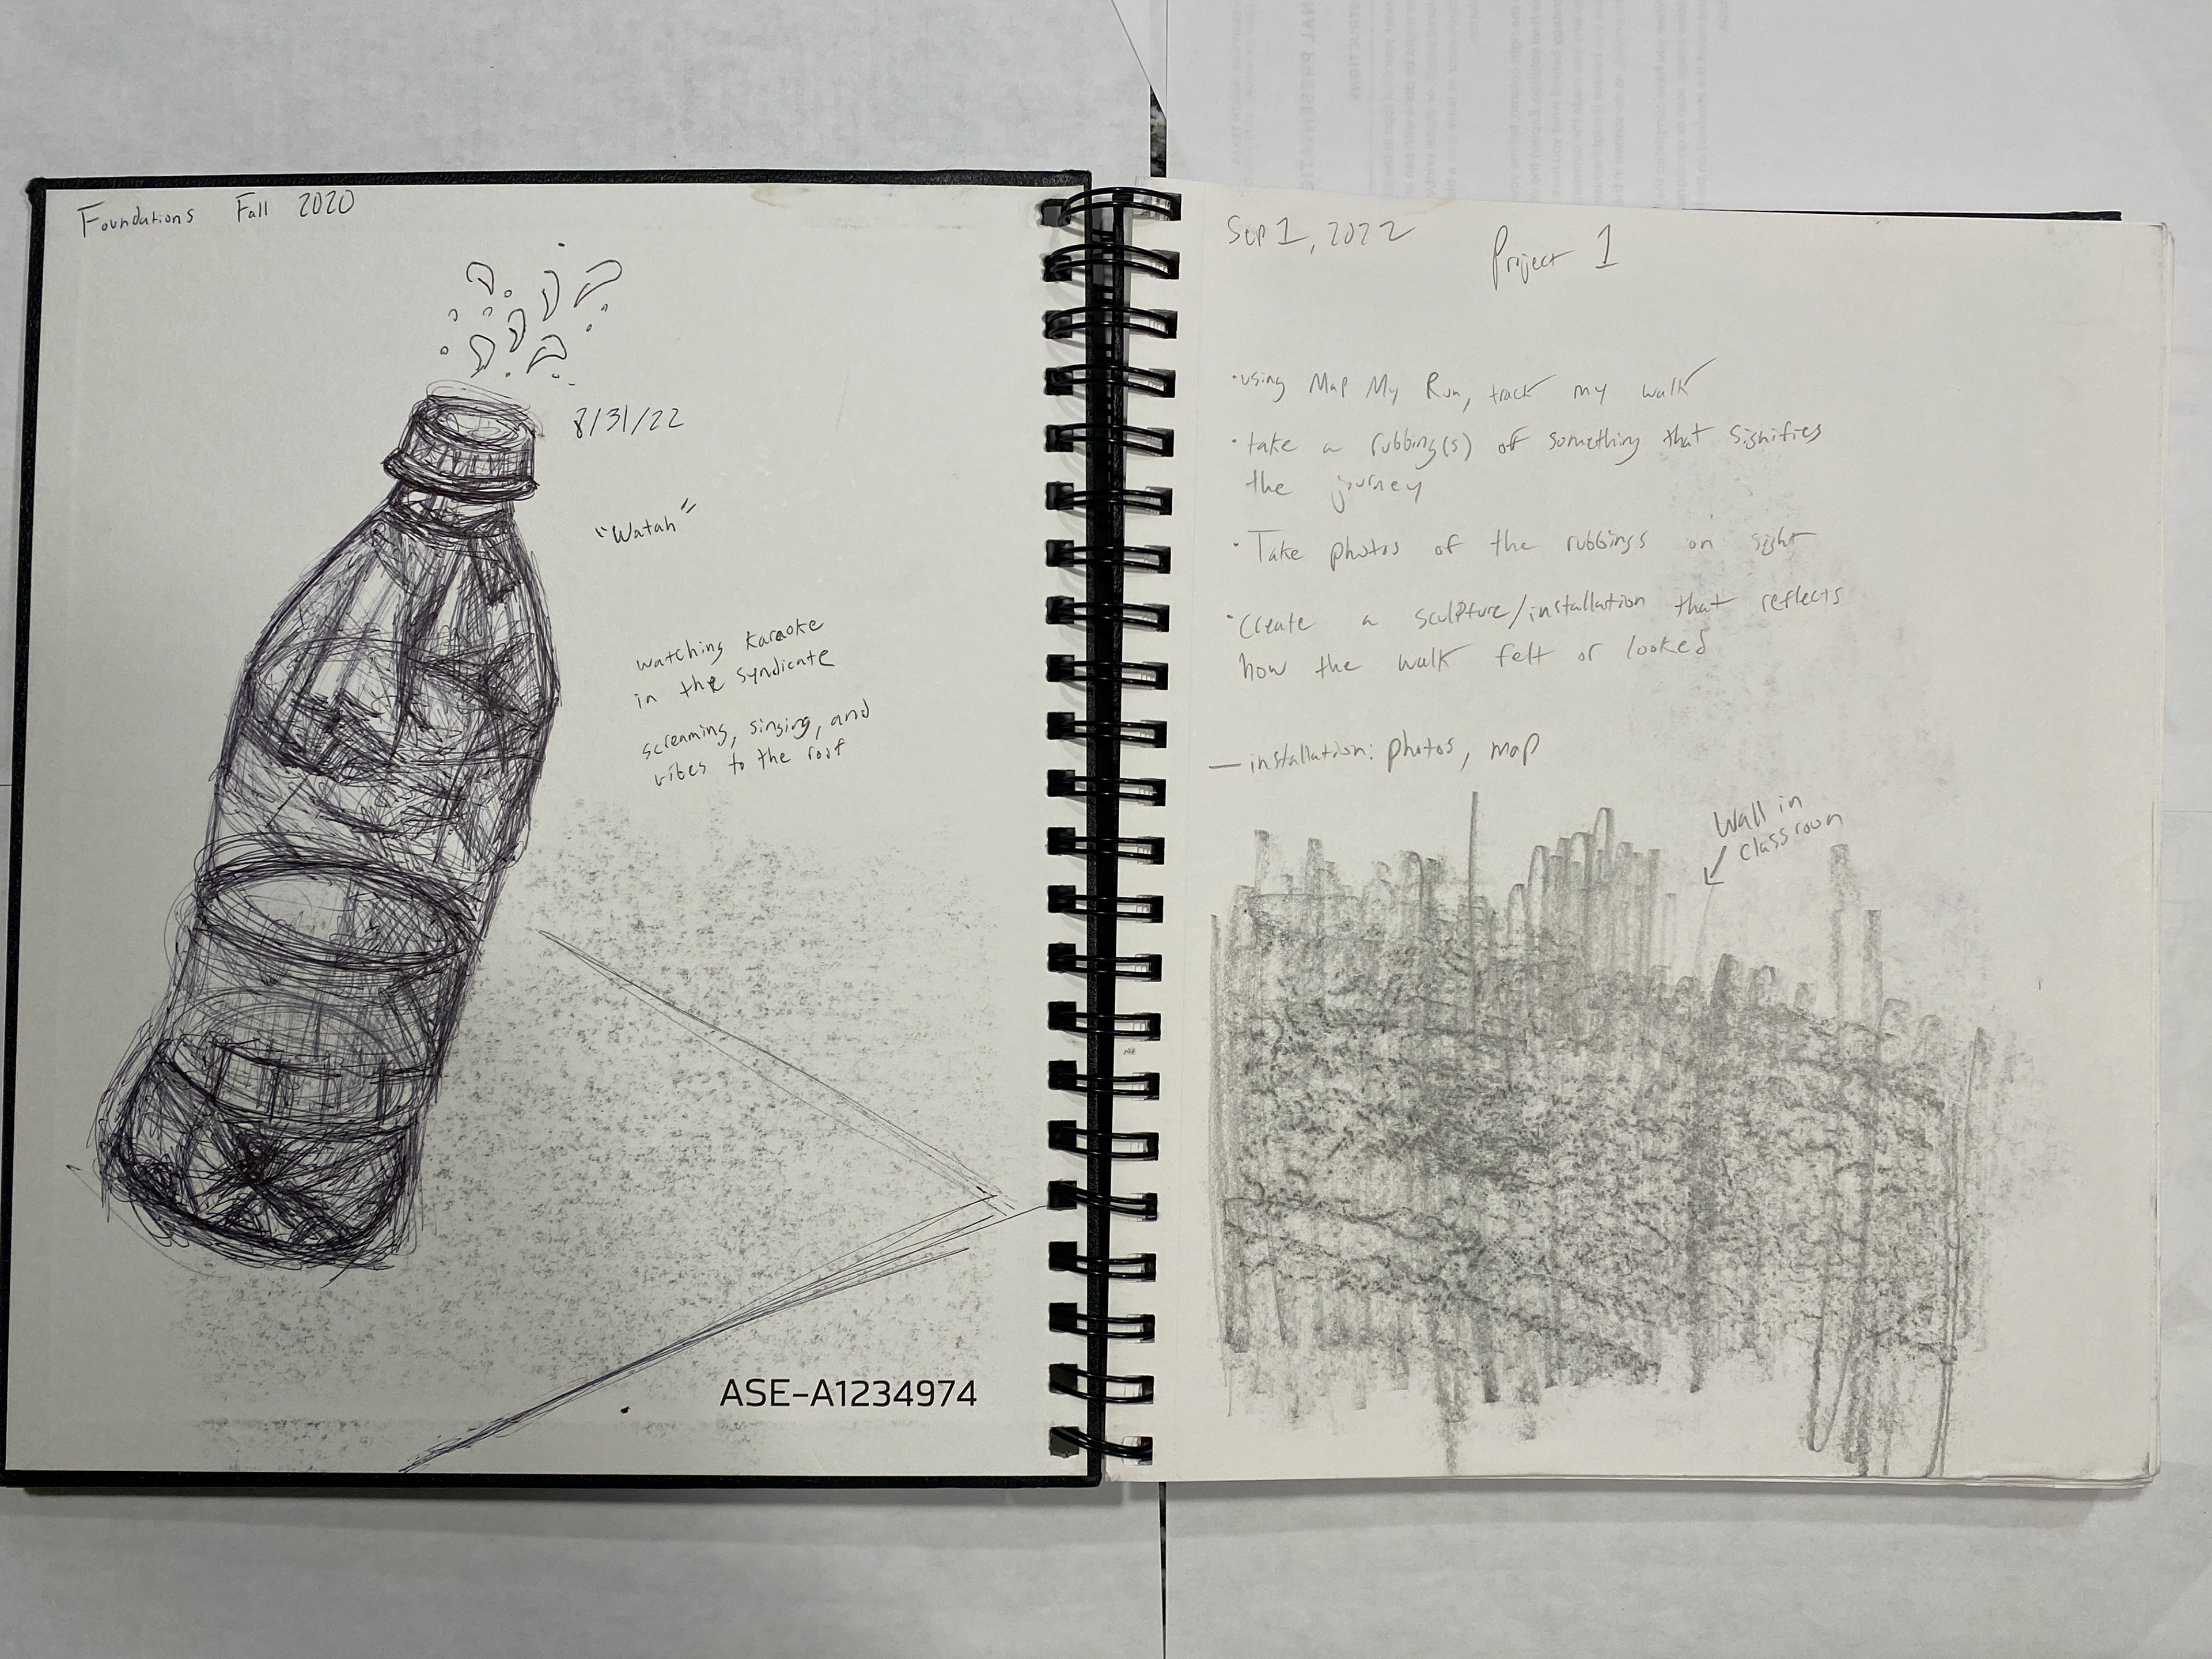 Foundations Fall 2020
8/31/22
"Watah"
watching karaoke
in the syndicate
screaming, singing, and
vibes to the roof
ASE-A1234974
Sep 1, 2022
Project 1
• using Map My Run, track my walk
• take a rubbing(s) of something that signifies
the journey
• Take photos of the rubbings on sight
• Create a sculpture/installation that reflects
how the walk felt or looked
— installation: photos, map
Wall in
classroom